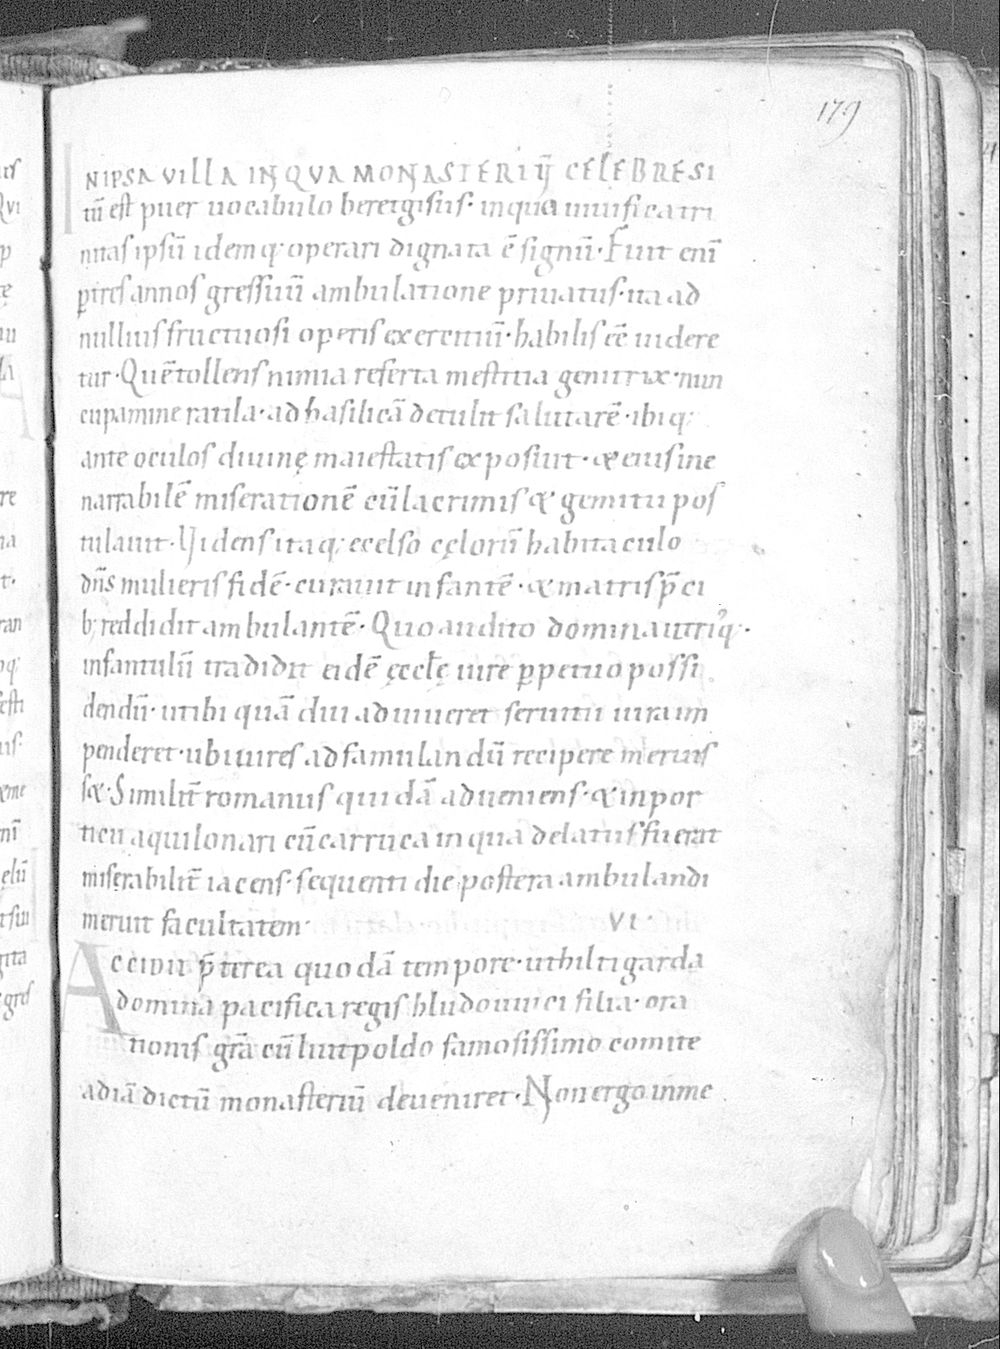 179
INIPSA VILLA IN QVA MONASTERIŪ CELEBRE SI
tū est puer uocabulo beretgisus· in qua uiuificatri
nitas ipsū idemq; operari dignata ē signū· Fuit enī
ꝑ tres annos gressuū ambulatione priuatus· ita ad
nullius fructuosi operis exercitiū· habilis eē uidere
tur· Quē tollens nimia referta mestitia genitrix· nun
cupamine ratila· ad basilicā detulit salutarē· ibiq;
ante oculos diuinę maiestatis exposuit· & eius ine
narrabilē miserationē cū lacrimis & gemitu pos
tulauit· Videns itaq; ecelso cęlorū habitaculo
dn̄s mulieris fidē· curauit infantē· & matris p̄ci
b; reddidit ambulantē· Quo audito domina utriq;·
infantulū tradidit eidē ęcclę iure ꝑpetuo possi
dendū· ut ibi quādiu aduiueret seruitii iura im
penderet· ubi uires ad famulandū recipere meruis
s&· Similit̄ romanus quidā adueniens· & in por
ticu aquilonari cū carruca in qua delatus fuerat
miserabilit̄ iacens· sequenti die postera ambulandi
meruit facultatem· VI·
Accidit p̄terea quodā tempore· ut hiltigarda
domina pacifica regis hludouuici filia· ora
tionis gr̄a cū liutpoldo famosissimo comite
ad iā dictū monasteriū deueniret· Non ergo inme